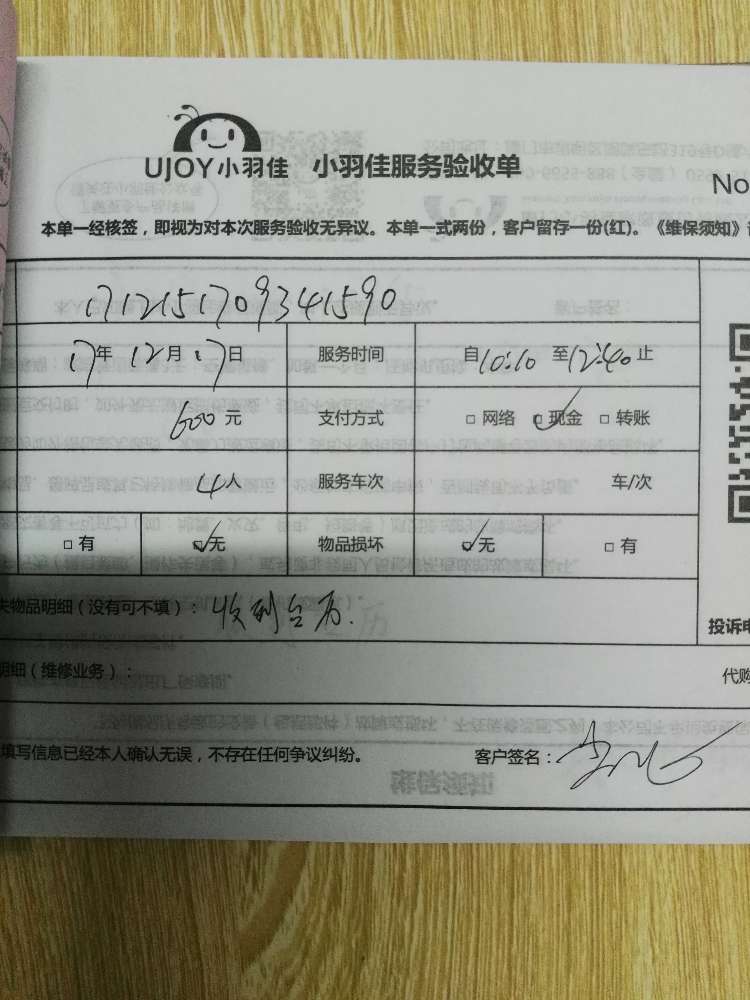 UJOY小羽佳 小羽佳服务验收单
No
本单一经核签，即视为对本次服务验收无异议。本单一式两份，客户留存一份(红)。《维保须知》
1712151709341590
17年 12月 17日 服务时间 自10:10 至12:40止
600元 支付方式 □ 网络 ☑ 现金 □ 转账
4人 服务车次 车/次
□ 有 ☑ 无 物品损坏 ☑ 无 □ 有
失物品明细（没有可不填）：收到台历.
投诉电
明细（维修业务）： 代购
填写信息已经本人确认无误，不存在任何争议纠纷。 客户签名：